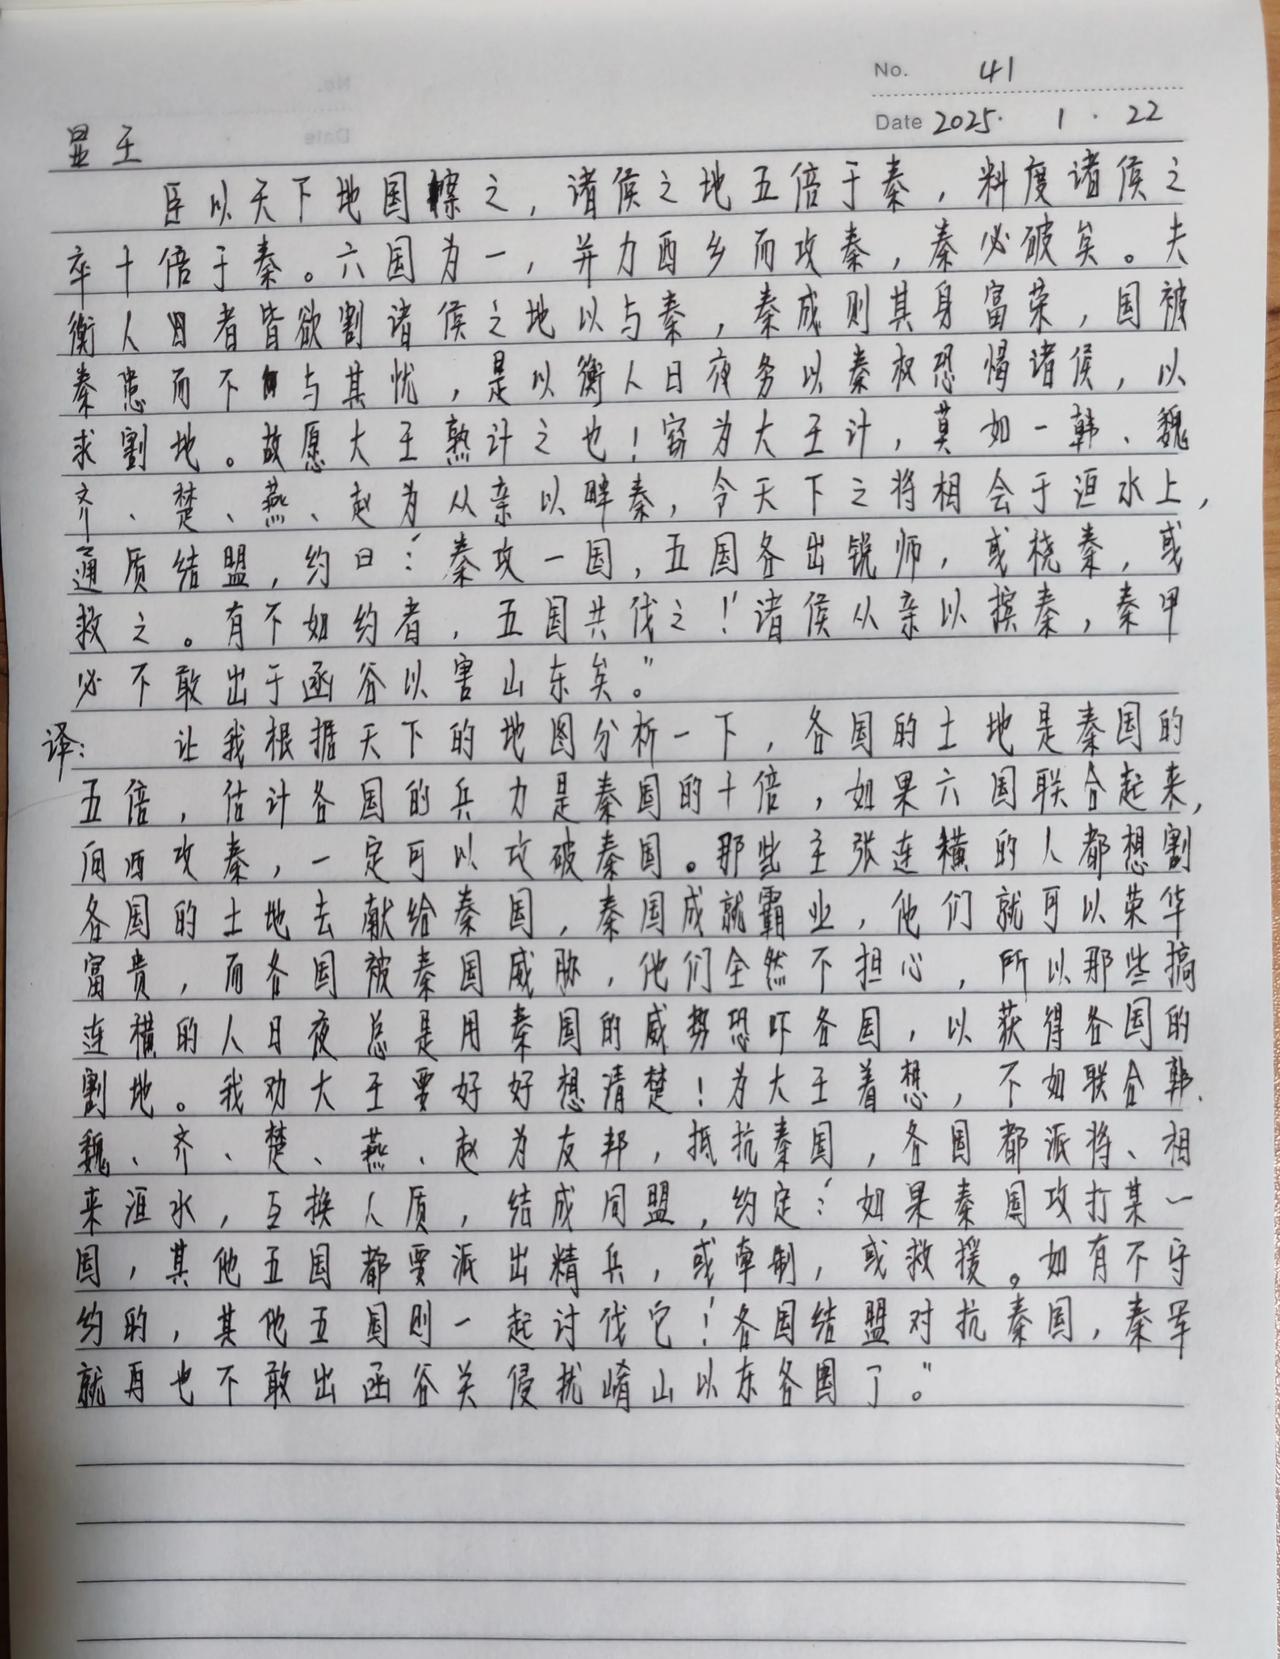 No. 41
Date 2025. 1 . 22
显王
臣以天下地国察之，诸侯之地五倍于秦，料度诸侯之
卒十倍于秦。六国为一，并力西乡而攻秦，秦必破矣。夫
衡人者皆欲割诸侯之地以与秦，秦成则其身富荣，国被
秦患而不与其忧，是以衡人日夜务以秦权恐愒诸侯，以
求割地。故愿大王熟计之也！窃为大王计，莫如一韩、魏
齐、楚、燕、赵为从亲以畔秦，令天下之将相会于洹水上，
通质结盟，约曰：‘秦攻一国，五国各出锐师，或桡秦，或
救之。有不如约者，五国共伐之！’诸侯从亲以摈秦，秦甲
必不敢出于函谷以害山东矣。”
译：让我根据天下的地图分析一下，各国的土地是秦国的
五倍，估计各国的兵力是秦国的十倍，如果六国联合起来，
向西攻秦，一定可以攻破秦国。那些主张连横的人都想割
各国的土地去献给秦国，秦国成就霸业，他们就可以荣华
富贵，而各国被秦国威胁，他们全然不担心，所以那些搞
连横的人日夜总是用秦国的威势恐吓各国，以获得各国的
割地。我劝大王要好好想清楚！为大王着想，不如联合韩、
魏、齐、楚、燕、赵为友邦，抵抗秦国，各国都派将、相
来洹水，互换人质，结成同盟，约定：‘如果秦国攻打某一
国，其他五国都要派出精兵，或牵制，或救援。如有不守
约的，其他五国则一起讨伐它！’各国结盟对抗秦国，秦军
就再也不敢出函谷关侵扰崤山以东各国了。”